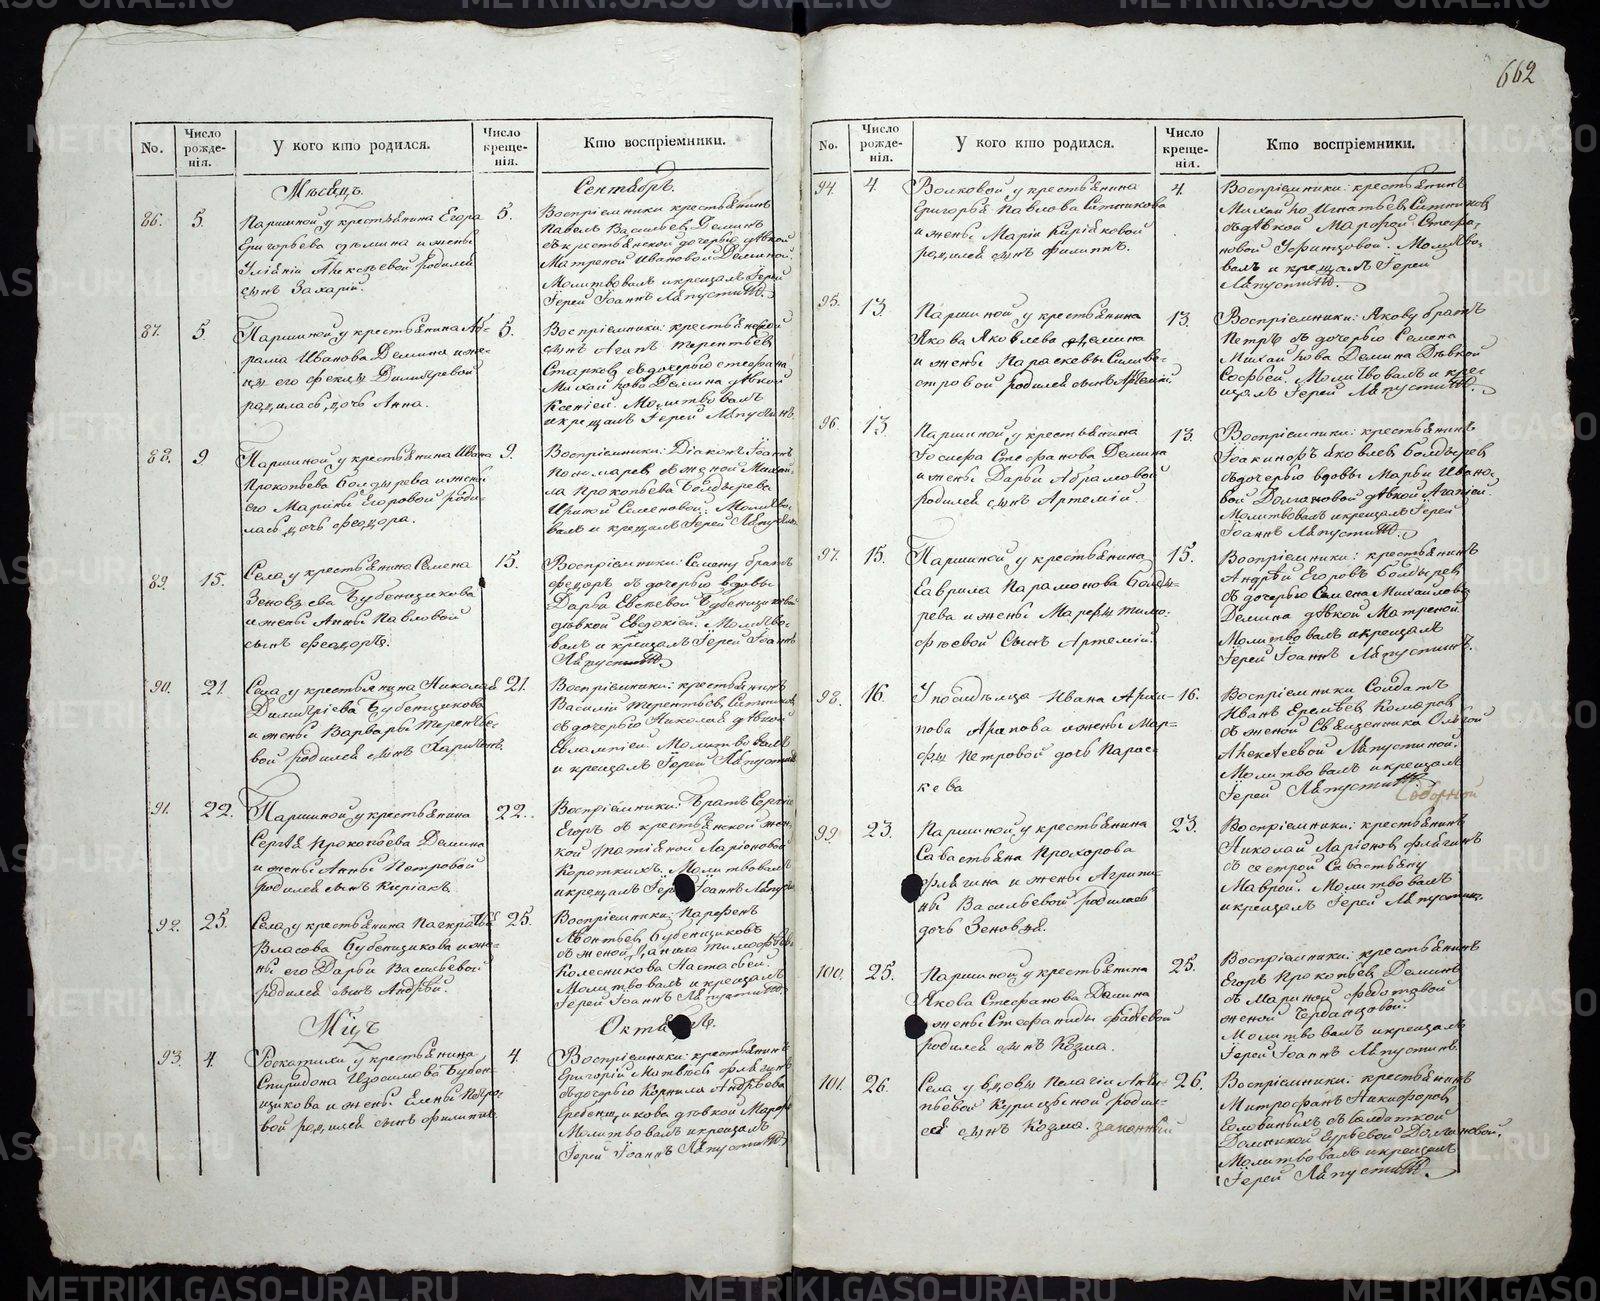 662
No.
Число рожде-нія.
У кого кто родился.
Число креще-нія.
Кто воспріемники.
Мѣсяцъ
Сентябрь.
86.
5.
Паршиной у крестьянина Егора
Григорьева Демина и жены
Алексѣевой родился
сынъ Захарій.
5.
Воспріемники крестьянинъ
Павелъ Васильевъ Деминъ
съ крестьянской дочерью дѣвкой
Матреной Ивановой Деминой.
Молитвовалъ и крещалъ Іерей
Іерей Іоаннъ Ляпустинъ.
87.
5
Паршиной у крестьянина Аб-
рама Иванова Демина и же-
ны его Феклы Димитріевой
родилась дочь Анна.
5.
Воспріемники: крестьянской
сынъ Агапъ Терентьевъ
съ дочерью Стефана
Михайлова Демина дѣвкой
Ксеніей. Молитвовалъ
и крещалъ Іерей Ляпустинъ.
88.
9
Паршиной у крестьянина Ивана
Прокопьева Болдырева и жены
его Марины Егоровой роди-
лась дочь Феодора.
9.
Воспріемники: Діаконъ Іоаннъ
Пономаревъ съ женой Михай-
ла Прокопьева Болдырева
Ириной Семеновой. Молитво-
валъ и крещалъ Іерей Ляпустинъ.
89.
15.
Села у крестьянина Семена
Зеновьева Бубенщикова
и жены Анны Павловой
сынъ Феодоръ.
15.
Воспріемники: Семену братъ
Федоръ съ дочерью вдовы
Дарьи Евсѣевой Бубенщиковой
дѣвкой Евдокіей. Молитво-
валъ и крещалъ Іерей Іоаннъ
Ляпустинъ
90.
21.
Села у крестьянина Николая
Димитріева Бубенщикова
и жены Варвары Терентье-
вой родился сынъ Харитонъ.
21.
Воспріемники: крестьянинъ
Василій Терентьевъ Ситниковъ
съ дочерью Николая дѣвкой
Евлампіей. Молитвовалъ
и крещалъ Іерей Ляпустинъ
91.
22.
Паршиной у крестьянина
Сергѣя Прокопьева Демина
и жены Анны Петровой
родился сынъ Киріакъ
22.
Воспріемники: Братъ Сергію
Егоръ съ крестьянской жон-
кой Татіаной Ларіоновой
Коротких. Молитвовалъ
и крещалъ Іерей Іоаннъ Ляпустинъ
92.
25.
Села у крестьянина
Власова Бубенщикова и же-
ны его Дарьи Васильевой
родился сынъ Андрѣй.
25.
Воспріемники: Парфенъ
Леонтьевъ Бубенщиковъ
съ женой Данила Тимофѣева
Колесникова Настасьей.
Молитвовалъ и крещалъ
Іерей Іоаннъ Ляпустинъ.
Мѣцъ
Октябрь.
93.
4.
у крестьянина
Спиридона Изосимова Бубен-
щикова и жены Елены Петро-
вой родился сынъ Филиппъ
4.
Воспріемники: крестьянинъ
Григорій Матвѣевъ Флягинъ
съ дочерью Корнила Андрѣева
дѣвкой Марфой
Молитвовалъ и крещалъ
Іерей Іоаннъ Ляпустинъ
No.
Число рожде-нія.
У кого кто родился.
Число креще-нія.
Кто воспріемники.
94.
4.
Волковой у крестьянина
Григорья Павлова Ситникова
и жены Маріи Кириковой
родился сынъ Филиппъ.
4.
Воспріемники: крестьянинъ
Михайло Игнатьевъ Ситниковъ
съ дѣвкой Марфой Стефа-
новой Уфинцовой. Молитво-
валъ и крещалъ Іерей
Ляпустинъ.
95.
13.
Паршиной у крестьянина
Якова Яковлева Демина
и жены Параскевы Сильве-
стровой родился сынъ Артемій.
13.
Воспріемники: Якову братъ
Петръ съ дочерью Семена
Михайлова Демина Дѣвкой
Софьей. Молитвовалъ и кре-
щалъ Іерей Ляпустинъ.
96.
13.
Паршиной у крестьянина
Іосифа Стефанова Демина
и жены Дарьи Абрамовой
родился сынъ Артемій.
13.
Воспріемники: крестьянинъ
Іоакимъ Яковлевъ Болдыревъ
съ дочерью вдовы Марьи Ивано-
вой Долгановой дѣвкой Агапіей.
Молитвовалъ и крещалъ Іерей
Іоаннъ Ляпустинъ.
97.
15.
Паршиной у крестьянина
Гаврила Парамонова Болды-
рева и жены Марфы Тимо-
фѣевой Сынъ Артемій.
15.
Воспріемники: крестьянинъ
Андрѣй Егоровъ Болдыревъ
съ дочерью Семена Михайлова
Демина дѣвкой Матреной
Молитвовалъ и крещалъ
Іерей Іоаннъ Ляпустинъ.
98.
16.
У посельца Ивана Архи-
пова Арапова и жены Мар-
фы Петровой дочь Парас
кева
16.
Воспріемники Солдатъ
Иванъ Еремѣевъ Комаровъ
съ женой Священника Ольгой
Алексѣевой Ляпустиной.
Молитвовалъ и крещалъ
Іерей Ляпустинъ.
99.
23.
Паршиной у крестьянина
Савастьяна Прохорова
Флягина и жены Агрипи-
ны Васильевой родилась
дочь Зеновья.
23.
Воспріемники: крестьянинъ
Николай Ларіоновъ Флягинъ
съ сестрой Савастьяну
Маврой. Молитвовалъ
и крещалъ Іерей Ляпустинъ.
100.
25.
Паршиной у крестьянина
Якова Стефанова Демина
и жены Стефаниды Фадѣевой
родился сынъ Козма.
25.
Воспріемники: крестьянинъ
Егоръ Прокопьевъ Деминъ
съ Мариной Федотовой
женой Черданцовой.
Молитвовалъ и крещалъ
Іерей Іоаннъ Ляпустинъ.
101.
26.
Села у вдовы Пелагіи Анти-
пьевой Курицыной родил-
ся сынъ Козма. законный
26.
Воспріемники: крестьянинъ
Митрофанъ Никифоровъ
съ солдаткой
Домникой Гурьевой Долгановой.
Молитвовалъ и крещалъ
Іерей Ляпустинъ.
METRIKI.GASO-URAL.RU